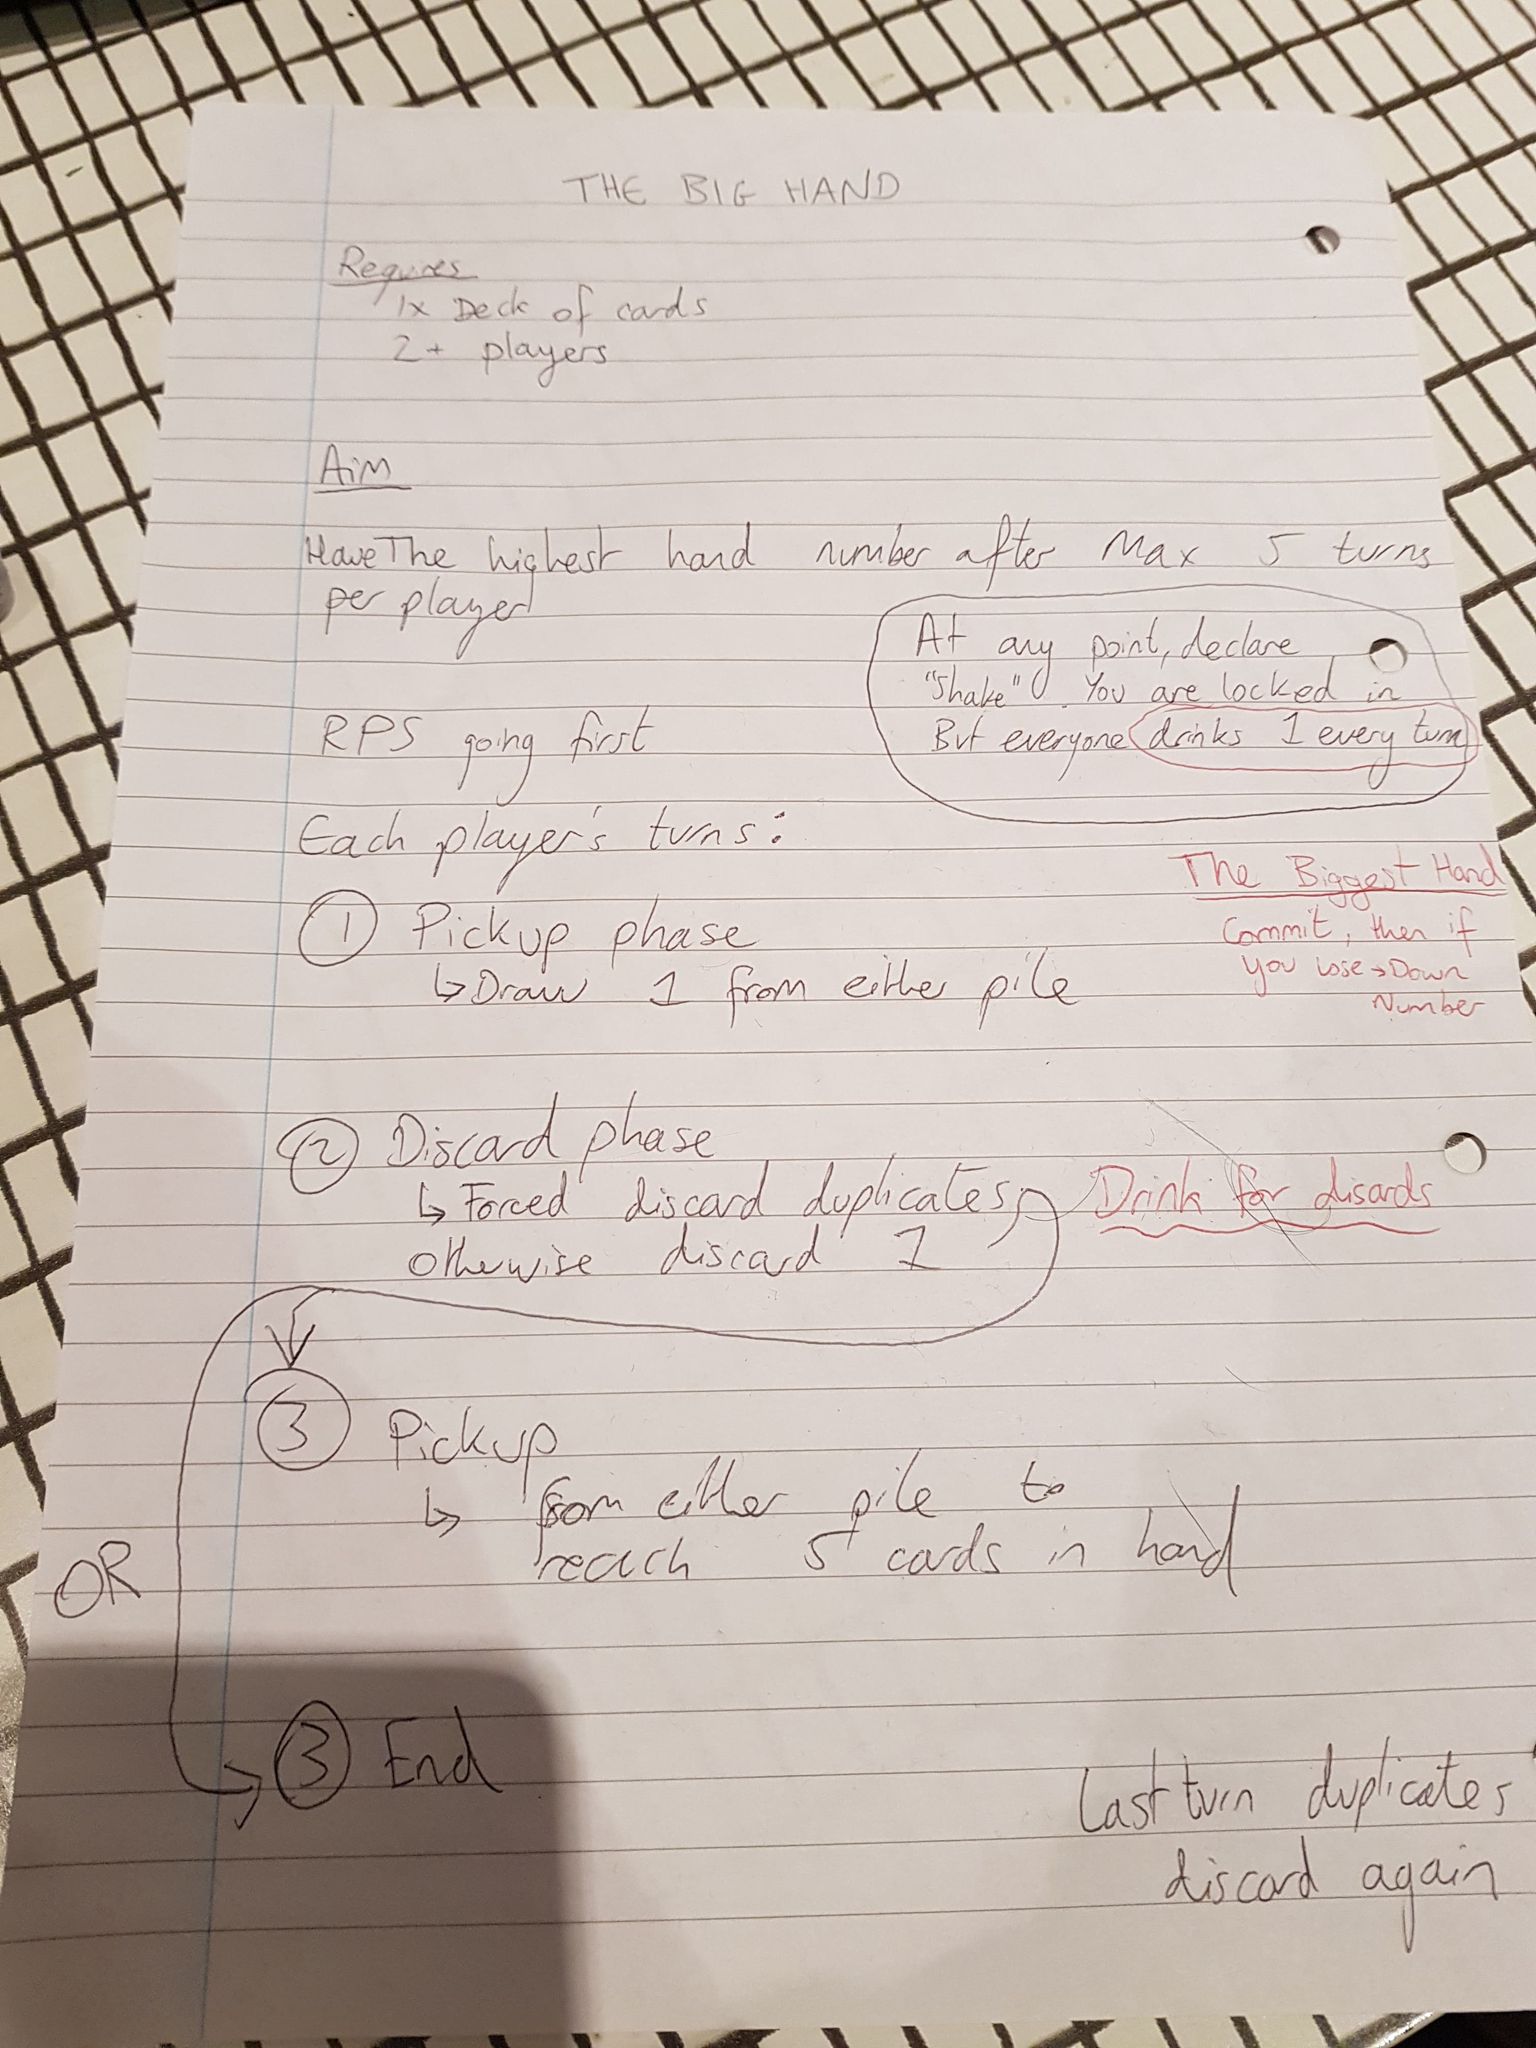 THE BIG HAND
Requires
1x Deck of cards
2+ players
Aim
Have The highest hand number after Max 5 turns
per player
At any point, declare
"Shake". You are locked in
But everyone drinks 1 every turn
RPS going first
Each player's turns:
The Biggest Hand
Commit, then if
you lose → Down
Number
1 Pickup phase
↳ Draw 1 from either pile
2 Discard phase
↳ Forced discard duplicates,
otherwise discard 1
Drink for disards
3 Pickup
↳ from either pile to
reach 5 cards in hand
OR
3 End
Last turn duplicates
discard again